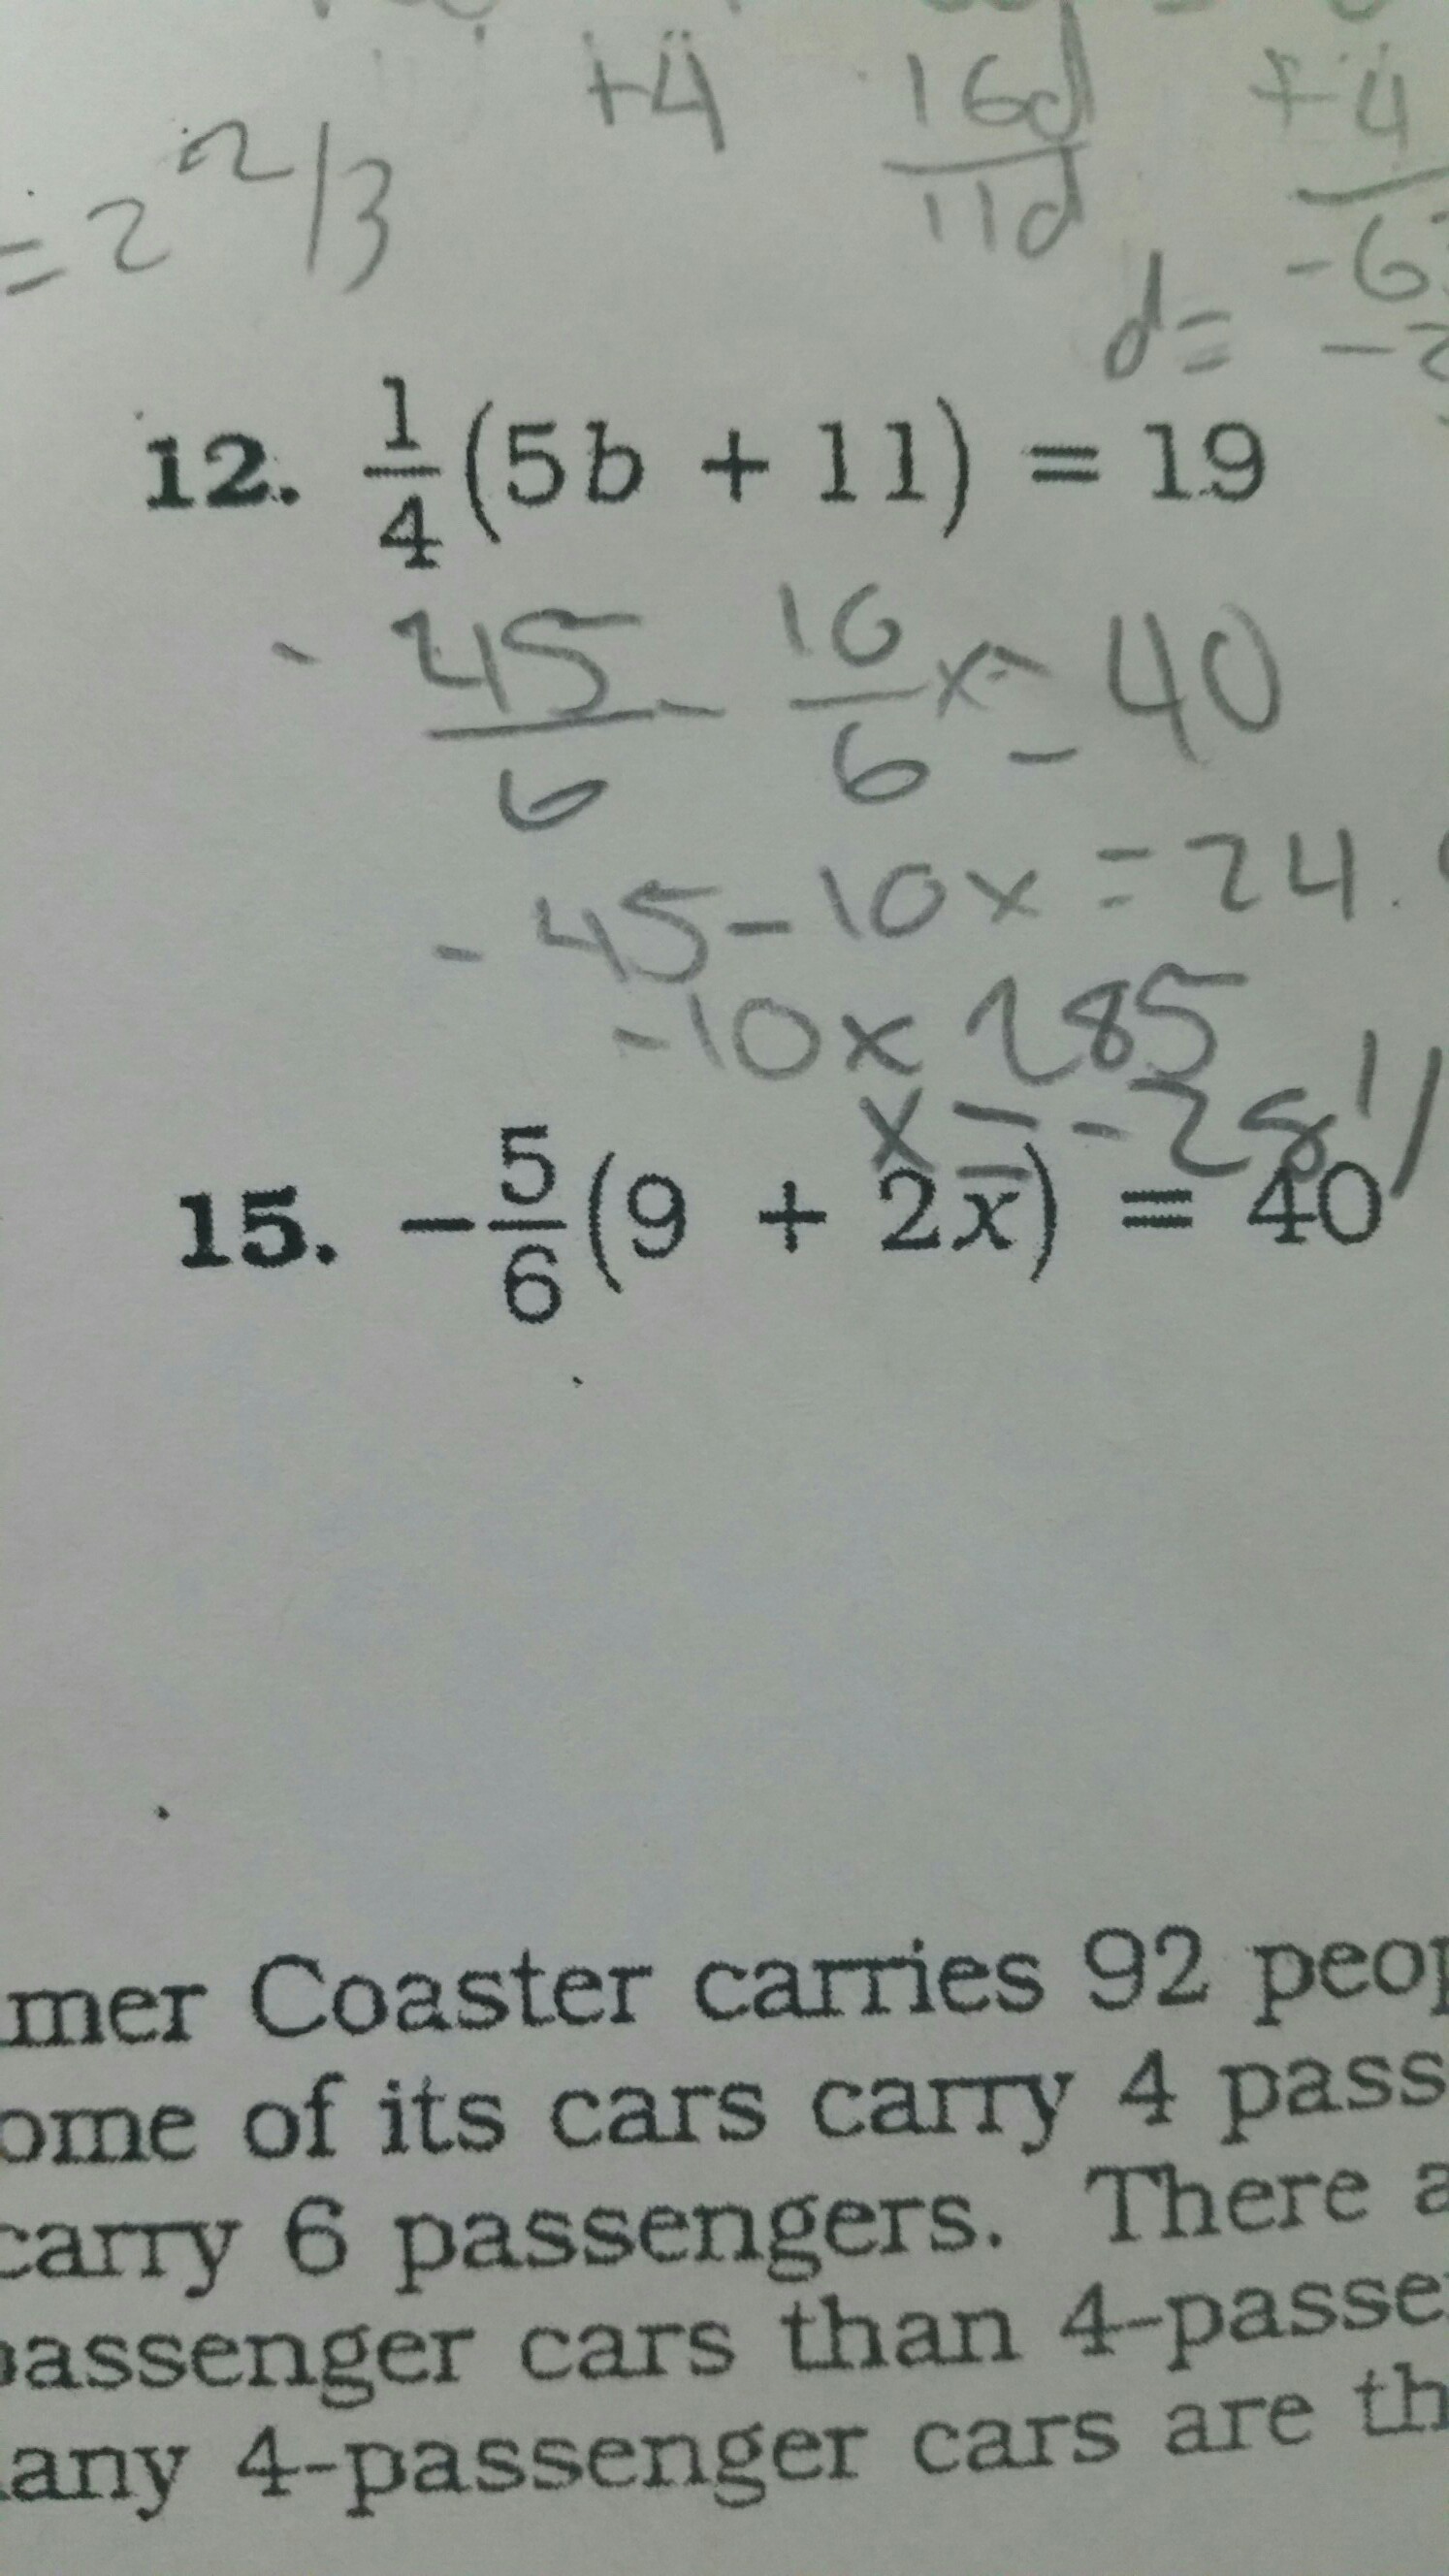 +4 16d +4
= 2 2/3 11d
-6
d= -2
12. 1/4(5b + 11) = 19
- 45/6 - 10/6 x = 40
- 45 - 10x = 24
-10x 285
x = -28 1/
15. -5/6(9 + 2x) = 40
mer Coaster carries 92 peop
ome of its cars carry 4 pass
carry 6 passengers. There a
passenger cars than 4-passe
any 4-passenger cars are th